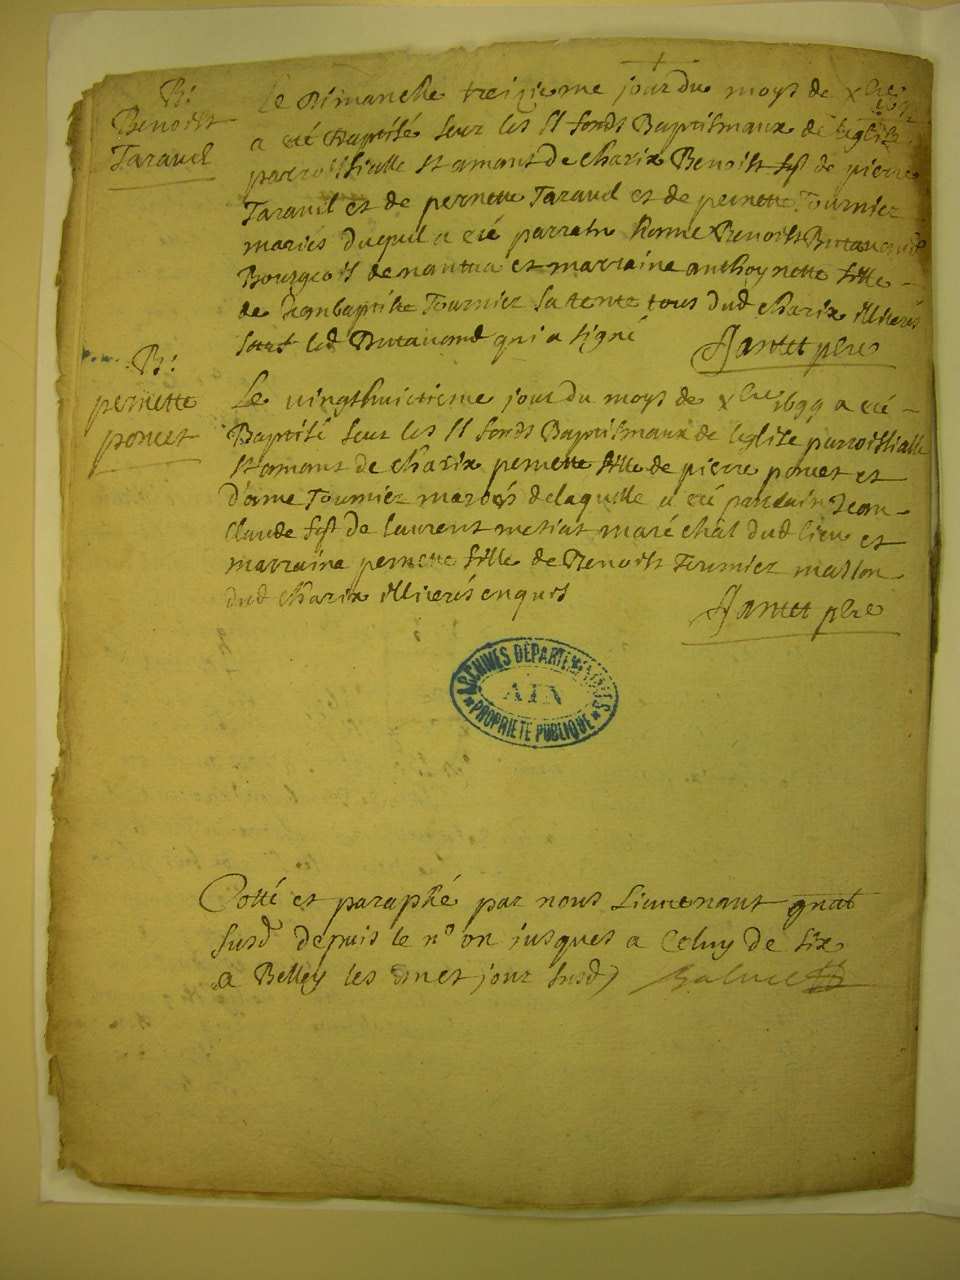 B:
Benoist
Taravel
Le Dimanche treizieme jour du moys de xbre
a eté Baptisé sur les Sts fonds Baptismaux de leglise
parroissialle St amant de Charix Benoist fils de pierre
Taravel et de pernette Taravel et de pernette Tournier
mariés duquel a eté parrain Benoist
Bourgeois de nantua et marraine anthoynette fille
de Jeanbaptiste Tournier sa tente tous dud Charix illiterés
sauf led qui a signé
Jantet pbre
B:
pernette
poncet
Le vingthuictieme jour du moys de xbre 1699 a eté
Baptisé sur les Sts fonds Baptismaux de leglise parroissialle
St amant de Charix pernette fille de pierre poncet et
Tournier mariés de laquelle a eté parrain Jean
Claude fils de laurent maréchal dud lieu et
marraine pernette fille de Benoist Tournier masson
dud Charix illiterés enquis
Jantet pbre
ARCHIVES DÉPARTEMENTALES
AIN
PROPRIÉTÉ PUBLIQUE
Cotté et paraphé par nous Lieutenant gnal
susd depuis le n° un jusques a Celuy de six
a Belley les an et jour susd